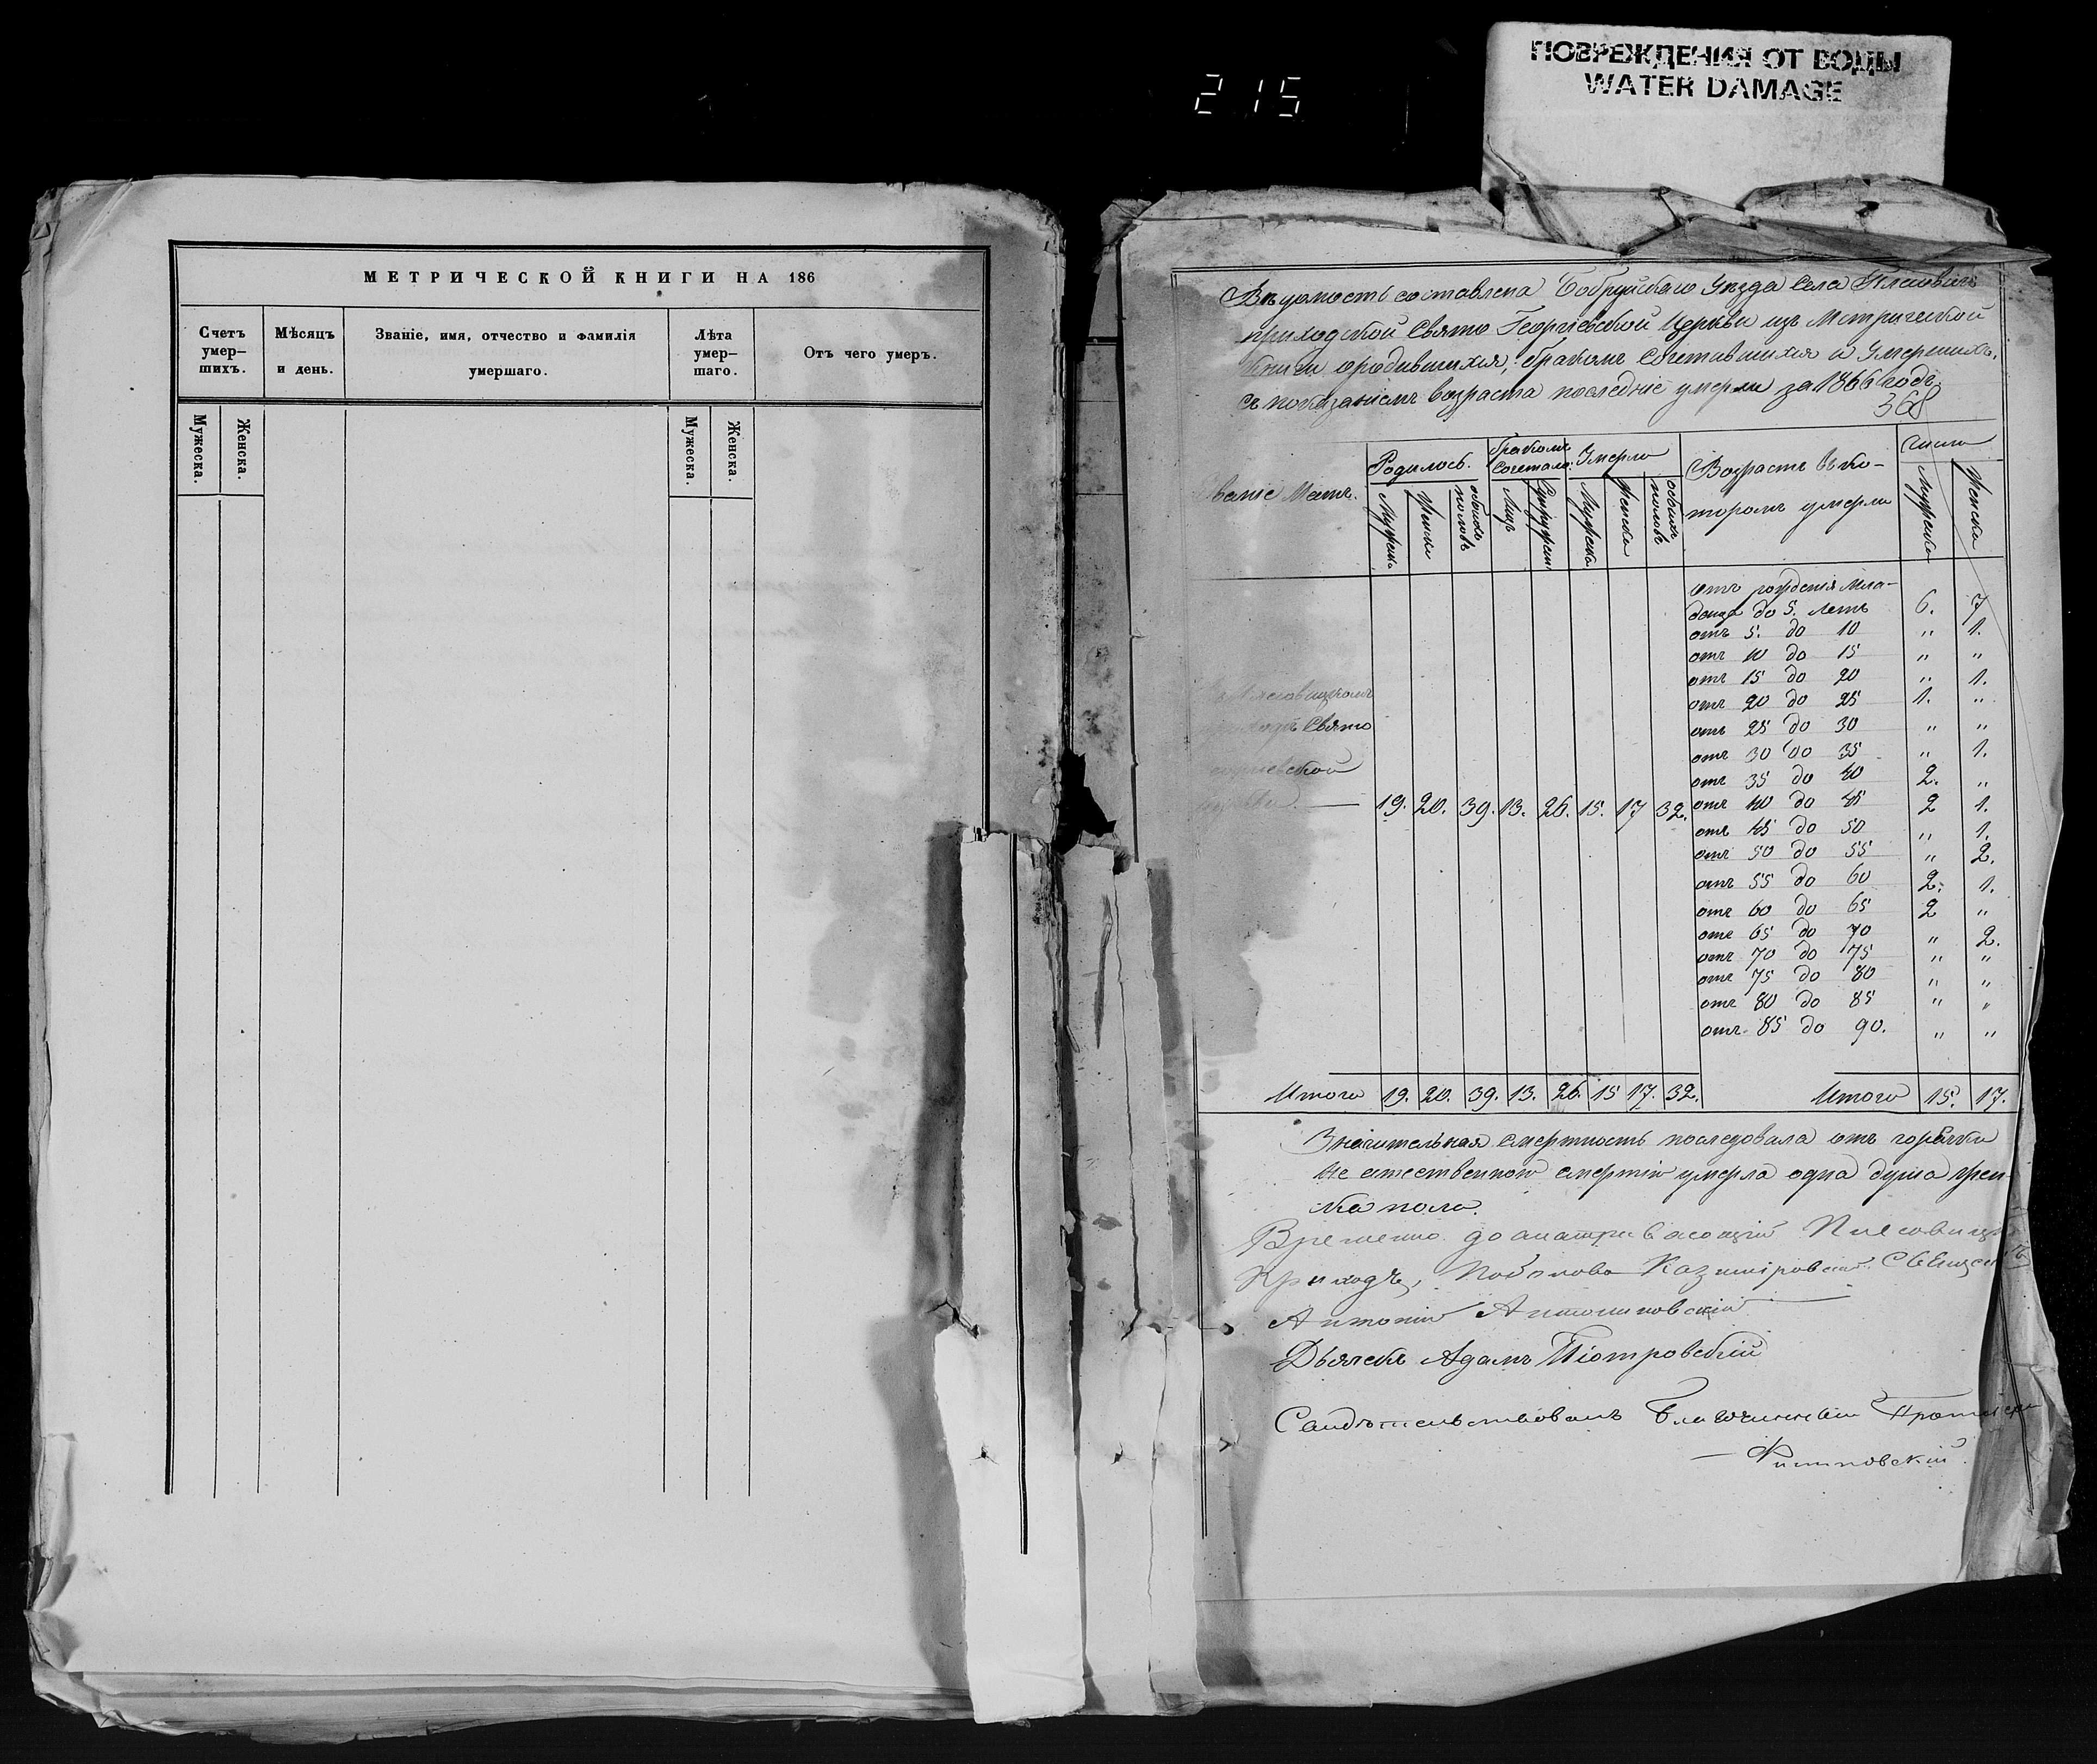 ПОВРЕЖДЕНИЯ ОТ ВОДЫ
WATER DAMAGE
215
МЕТРИЧЕСКОЙ КНИГИ НА 186
Счетъ умер-шихъ.
Мѣсяцъ и день.
Званіе, имя, отчество и фамилія умершаго.
Лѣта умер-шаго.
Отъ чего умеръ.
Мужеска.
Женска.
Мужеска.
Женска.
Вѣдомость составлена Бобруйскаго Уѣзда Села
приходской Свято Георгіевской Церкви изъ Метрической
Книги о родившихся, бракомъ сочетавшихся и Умершихъ,
съ показаніемъ возраста последніе умерли за 1866 годъ.
368
Родилось.
Бракомъ
Умерло
Возрастъ въ ко-
тормъ умерли
Число
Мужска
Женска
обоихъ половъ
Лицъ
Мужска
Женска
обоихъ половъ
Мужска
Женска
отъ рожденія мла-
денца до 5. летъ 6. 7
отъ 5. до 10 " 1.
отъ 10 до 15 " "
отъ 15 до 20 " 1.
отъ 20 до 25 1. "
отъ 25 до 30 " "
отъ 30 до 35 " 1.
отъ 35 до 40 2. "
Свято
19. 20. 39. 13. 26. 15. 17 32. отъ 40 до 45 2 1.
отъ 45 до 50 " 1.
отъ 50 до 55 " 2.
отъ 55 до 60 2. 1.
отъ 60 до 65 2 "
отъ 65 до 70 " 2.
отъ 70 до 75 " "
отъ 75 до 80 " "
отъ 80 до 85 " "
отъ 85 до 90. " "
Итого 19. 20. 39. 13. 26. 15 17. 32. Итого 15. 17.
Значительная смертность последовала отъ горячки
Не естественной смертію умерла одна душа жен-
ска пола.
Временно
Приходъ,
Антоній Антониновскій
Дьячекъ Адамъ Піотровскій
Свидѣтельствовалъ Благочинный